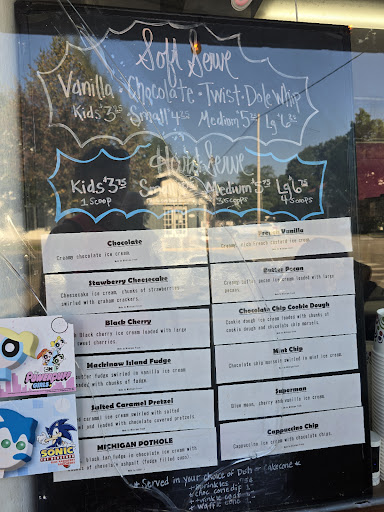 Soft Serve
Vanilla · Chocolate · Twist · Dole Whip
Kids $3 Small $4 Medium $5 Lg $6
Serve
Kids $3.75 Medium Lg
1 scoop 3 scoops 4 scoops
Chocolate
Creamy chocolate ice cream
Stawberry Cheesecake
Cheesecake ice cream, chunks of strawberries
swirled with graham crackers.
Black Cherry
Black cherry ice cream loaded with large
sweet cherries.
Mackinaw Island Fudge
fudge swirled in vanilla ice cream
and with chunks of fudge.
Salted Caramel Pretzel
caramel ice cream swirled with salted
and loaded with chocolate covered pretzels
MICHIGAN POTHOLE
black tar fudge in chocolate ice cream with
of chocolate asphalt (fudge filled cups)
French Vanilla
custard ice cream
Butter Pecan
pecan ice cream loaded with large
pecans.
Chocolate Chip Cookie Dough
Cookie dough ice cream loaded with chunks of
cookie dough and chocolate chip morsels.
Mint Chip
Chocolate chip morsels swirled in mint ice cream.
Superman
Blue moon, cherry and vanilla ice cream
Cappuccino Chip
Cappuccino ice cream with chocolate chips.
* Served in your choice of Dish or Cakecone *
* Sprinkles
* Waffle cone
POWERPUFF
GIRLS
SONIC
THE HEDGEHOG